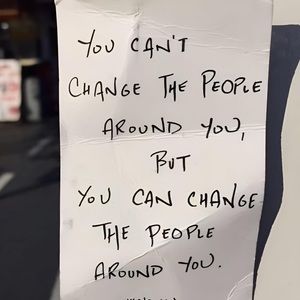 You CAN'T
CHANGE THE PEOPLE
AROUND YOU,
BUT
YOU CAN CHANGE
THE PEOPLE
AROUND YOU.